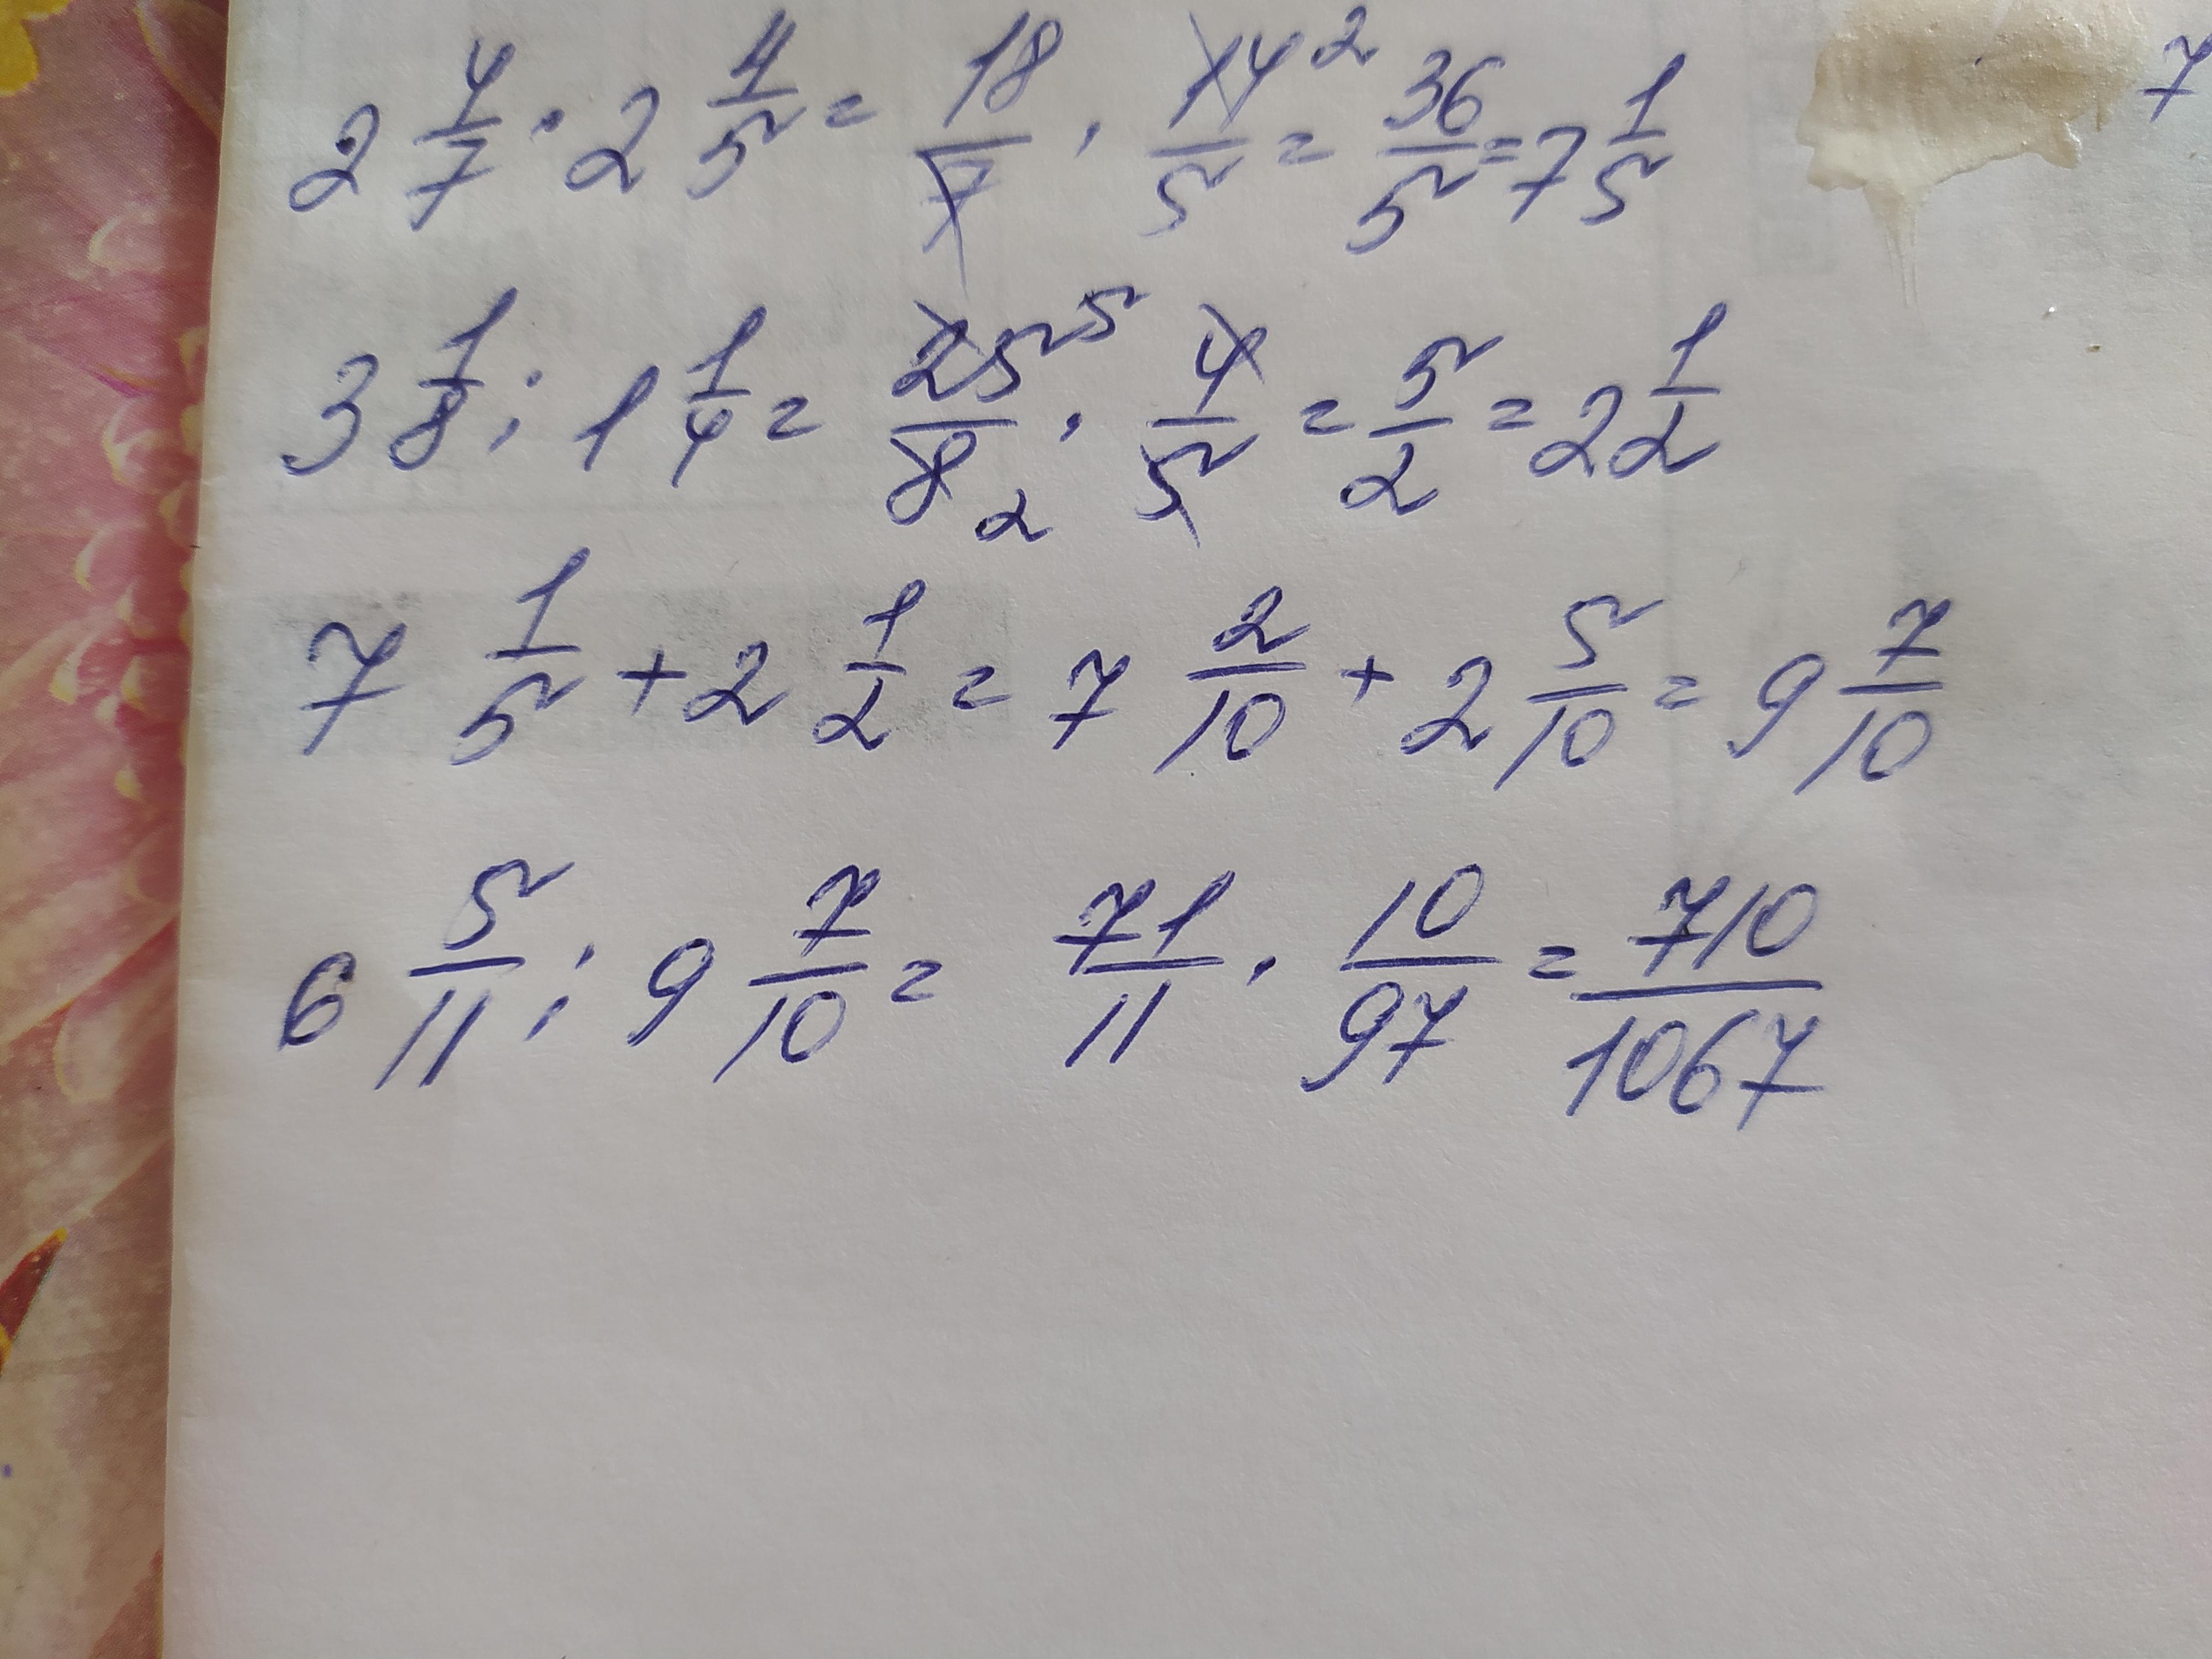 2 4/7 · 2 4/5 = 18/7 · 14/5 2 = 36/5 = 7 1/5
7
3 1/8 : 1 1/4 = 25/8 5 2 · 4/5 = 5/2 = 2 1/2
7 1/5 + 2 1/2 = 7 2/10 + 2 5/10 = 9 7/10
6 5/11 : 9 7/10 = 71/11 · 10/97 = 710/1067